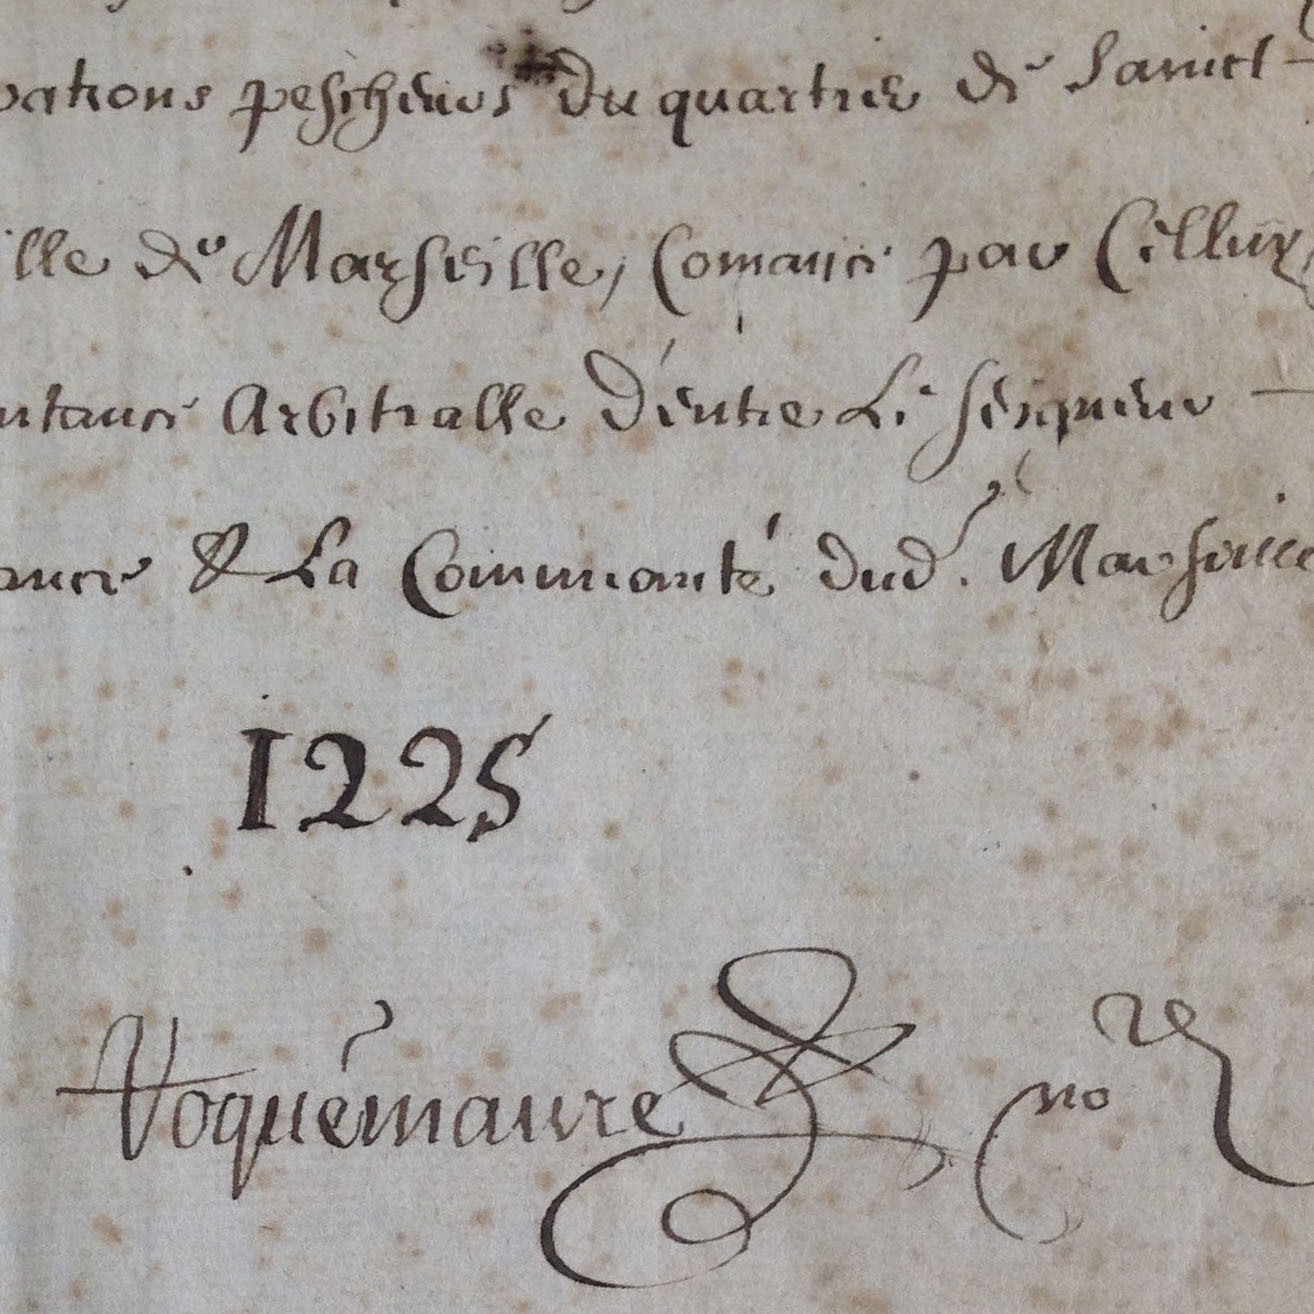 vations pescheurs du quartier de Sainct
ille de Marseille, Comance par Celluy
ntance Arbitralle d'entre Le seigneur
ance & La Communauté dud. Marseille
1225
Roquemaure no re